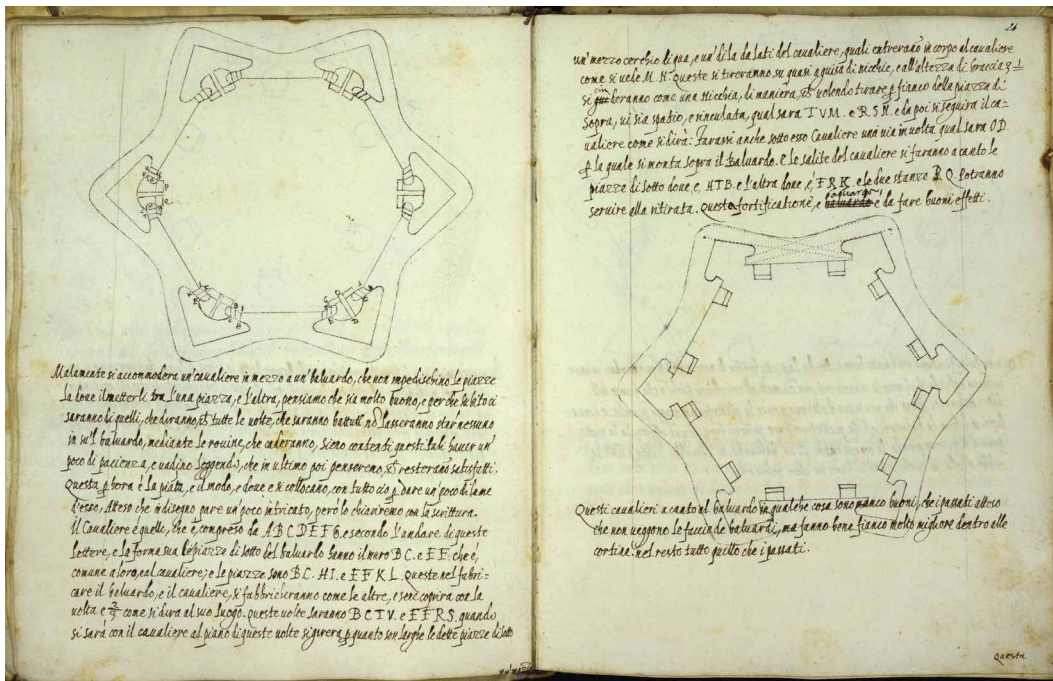 Malamente si accommodera un'caualiere in mezzo a un'baluardo, che non impedischino le piazze
La doue il metterli tra l'una piazza, e l'altra, pensiamo che sia molto buono, e perche subito ci
saranno di quelli, che diranno, tutte le uolte, che saranno battuti, lasseranno star'nessuno
in su'l baluardo, mediante le rouine, che caderanno, Sieno contenti questi tali hauer un'
poco di pacienza, e uadino leggendo, che in ultimo poi penseremo, resteranno satisfatti.
Questa p hora è la piāta, e il modo, e doue si collocano, con tutto ciò p dare un'poco di lume
d'esso, Atteso che in disegno pare un'poco intricato, però lo chiariremo con la scrittura.
Il Caualiere è quello, che è compreso da A B C D E F G. e secondo l'andare di queste
lettere, e la forma sua le piazze di sotto del baluardo hanno il muro B C. e E F. che è
comune a loro, e al caualiere; e le piazze sono B.C. H I. e E F K L. Queste nel fabri=
care il baluardo, e il caualiere, si fabbricheranno come le altre, e se ne coprira con la
uolta e 2/3 come si dira al suo luogo. queste uolte saranno B C T V. e E F R S. quando
si sarà con il caualiere al piano di queste uolte si girerà p quanto son larghe le dette piazze di sotto
un'mezzo
24
un'mezzo cerchio di qua, e un'di la da lati del caualiere, quali entreranno in corpo al caualiere
come si uede M. N. Queste si tireranno su quasi a guisa di nicchie, e all'altezza di braccia 3 1/2
si deranno come una Nicchia, di maniera, uolendo tirare p fianco della piazza di
sopra, ui sia spatio, e sinculata, qual sara T V M. e R S N. e da poi si seguira il ca=
ualiere come si dirà. Farassi anche sotto esso Caualiere una uia in uolta qual sarà O D.
p la quale si monta sopra il Baluardo. e le salite del caualiere si faranno a canto le
piazze di sotto doue, e. H I B. e l'altra doue, è, F R K. e le due stanze P. Q. potranno
seruire alla ritirata. Questa fortificatione, e baluardo e da fare buoni effetti.
Questi caualieri a canto al baluardo in qualche cosa sono manco buoni, che i passati atteso
che non ueggono le faccia de baluardi, ma fanno bene fianco molto migliore dentro alle
cortine. nel resto tutto quello che i passati.
Questa